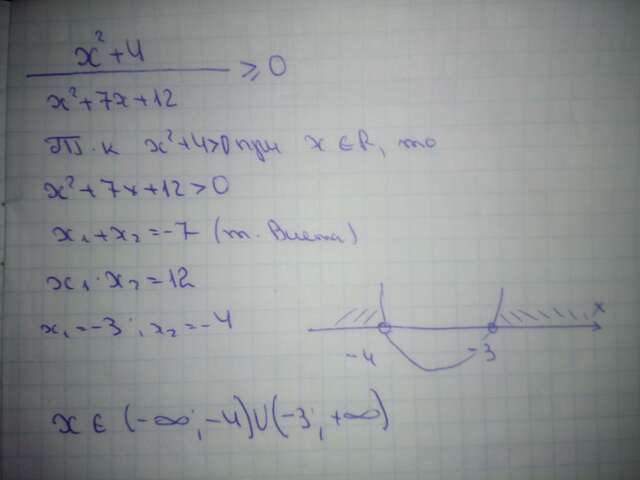 x²+4 / x²+7x+12 ≥ 0
Т.к x²+4>0 при x ∈ R, то
x²+7x+12>0
x₁+x₂=-7 (т. Виета)
x₁·x₂=12
x₁=-3; x₂=-4
x
-4 -3
x ∈ (-∞; -4)∪(-3; +∞)